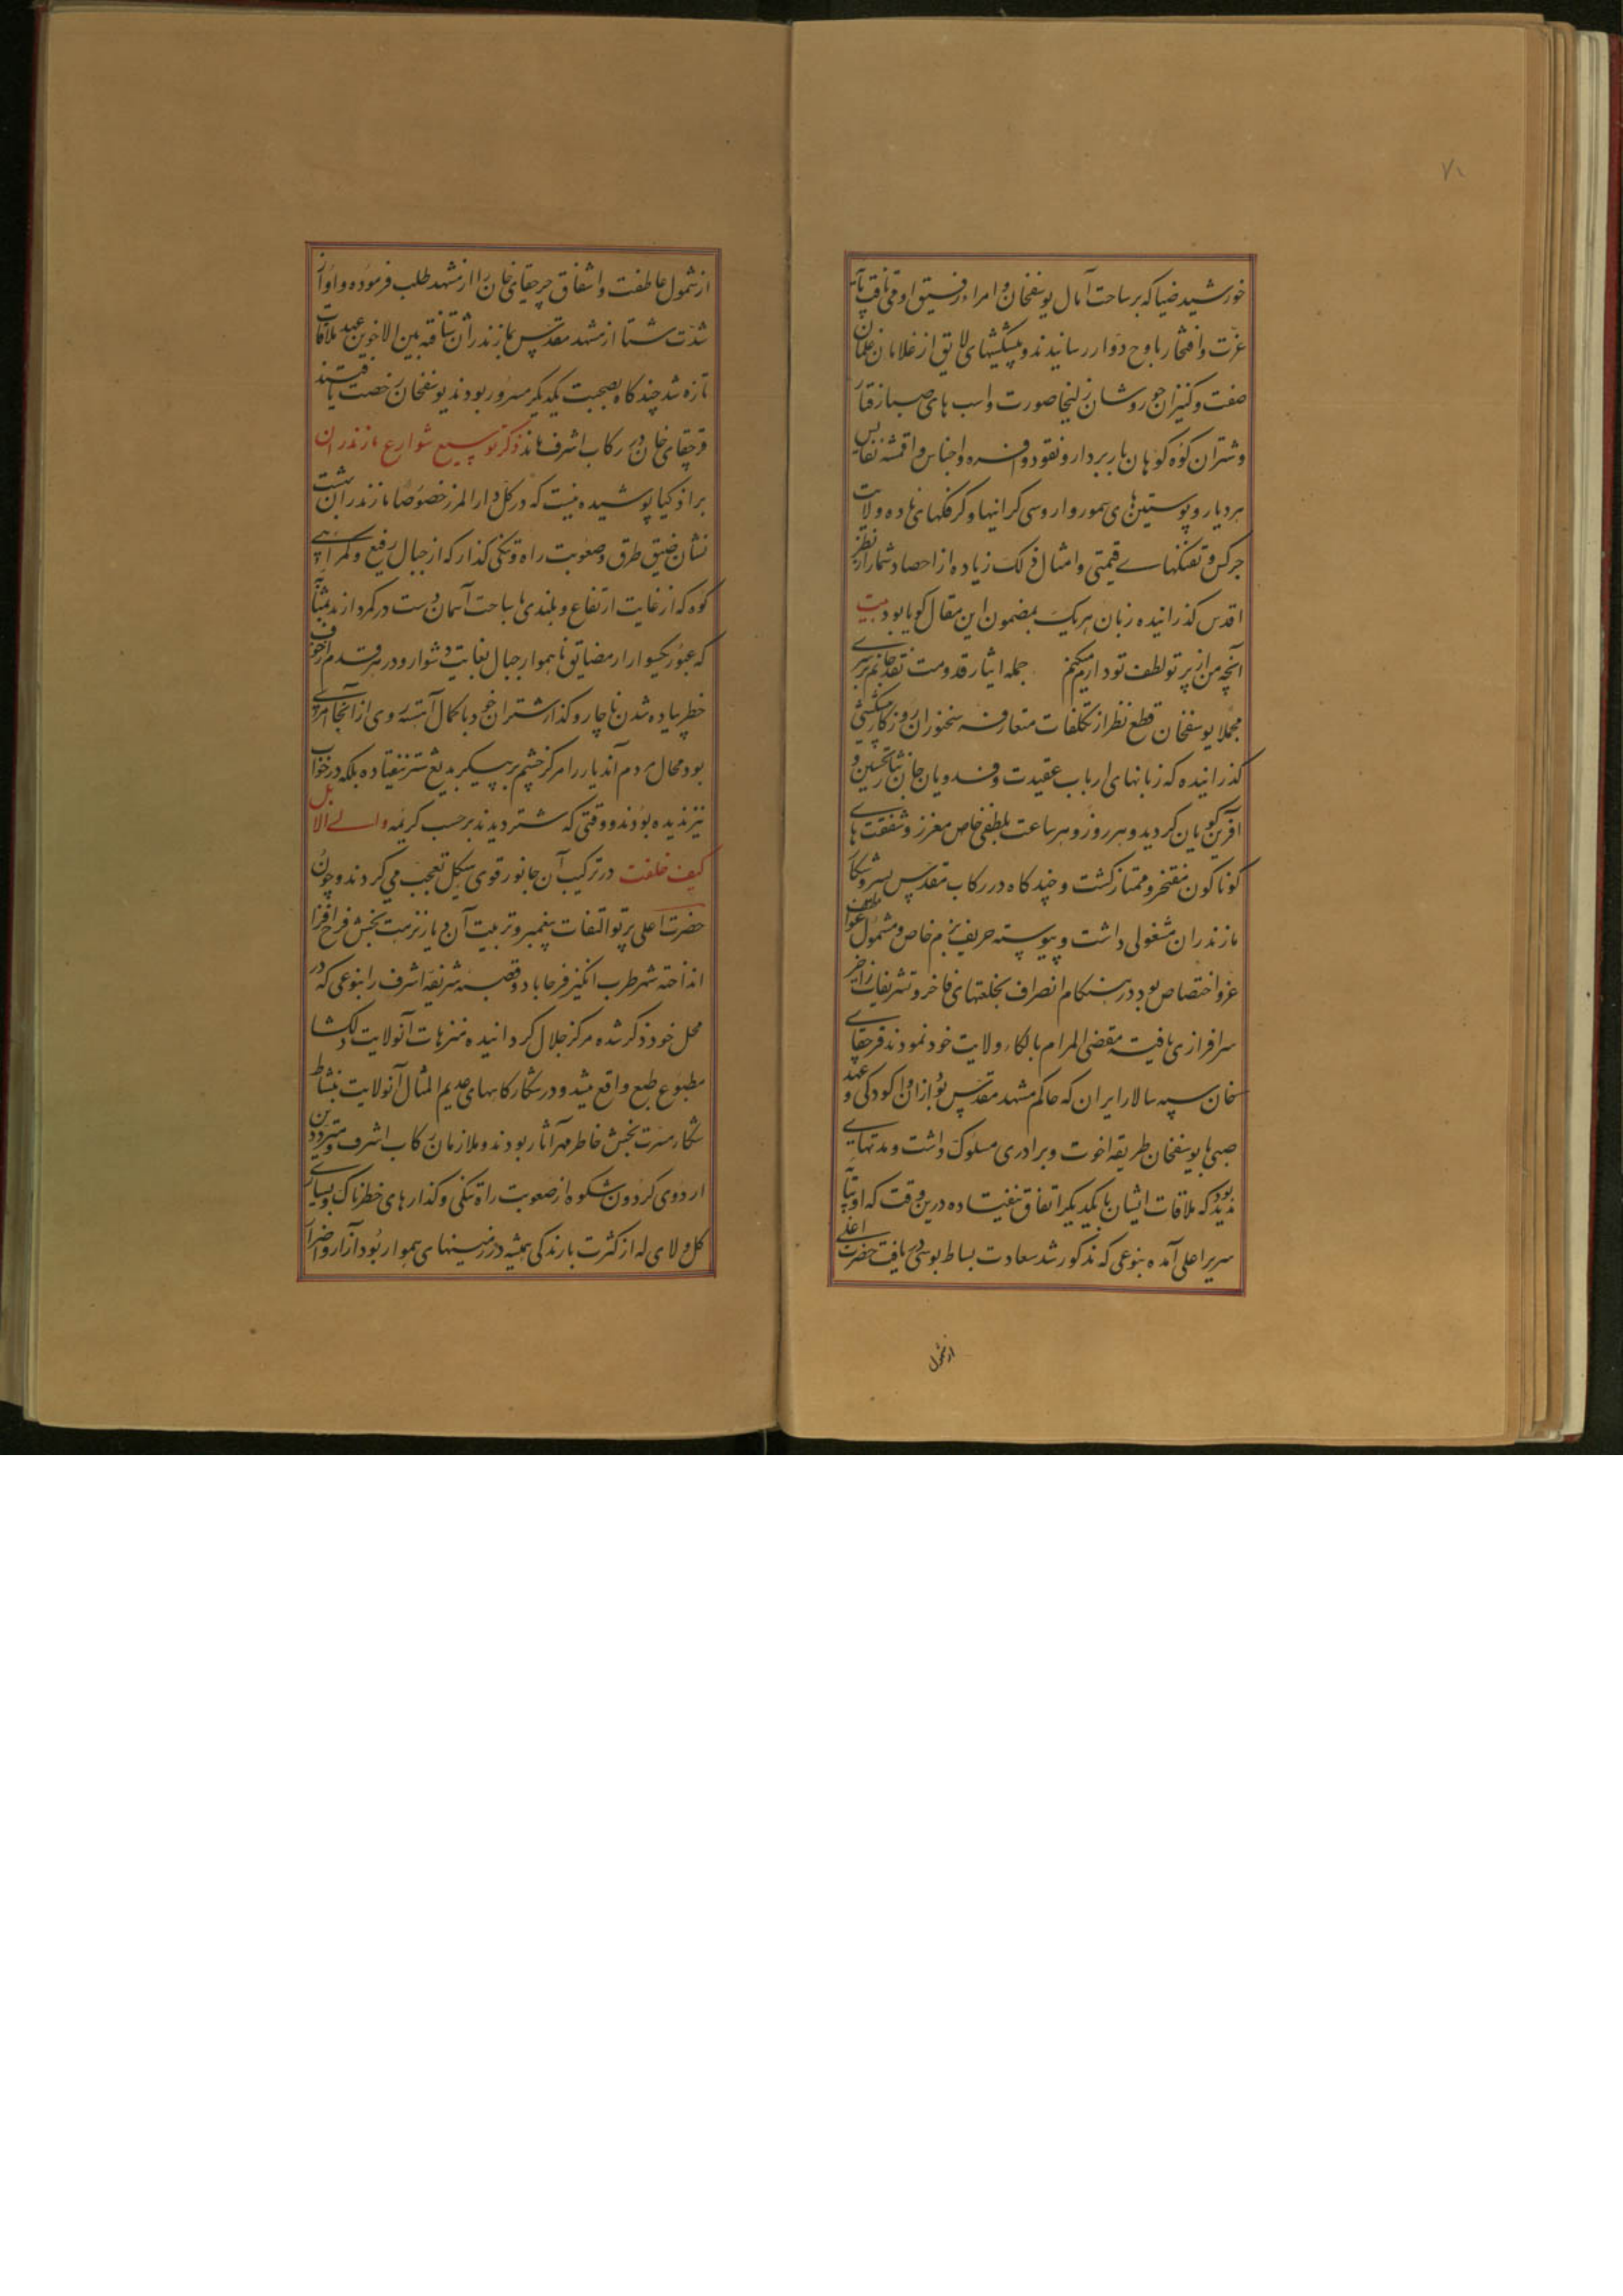 ۷۱
خورشید ضیا که بر ساحت آمال یوسفخان و امراء رفیق او می تافت
عزت و افتخار باوج دوار رسانیدند و پیشکشهای لایق از غلامان غلمان
صفت و کنیزان حور وشان زلیخا صورت و اسب های صبا رفتار
و شتران کوه کوهان باربردار و نقود وافره و اجناس و اقمشه نفایس
هر دیار و پوستین های سمور و اروسی کرانبها و کرفکهای ولایت
جرکس و تفنکهاے قیمتی و امثال ذلک زیاده از احصا و شمار از نظر
اقدس کذرانیده زبان هریک بمضمون این مقال کویا بود بیت
آنچه من از پرتو لطف تو دارم میکنم جمله ایثار قدومت نقد جانم بر سرے
مجملا یوسفخان قطع نظر از تکلفات متعارفه سخنوران روزکار پیشکشی
کذرانیده که زبانهای ارباب عقیدت و فدویان جان نثار تحسین و
آفرین کویان کردید و هر روز و هر ساعت بلطفی خاص معزز و شفقت هاے
کوناکون مفتخر و ممتاز کشت و چند کاه در رکاب مقدس بسیر و شکار
مازندران مشغولی داشت و پیوسته حریف بزم خاص و مشمول عواطف
عز و اختصاص بود در هنکام انصراف بخلعتهای فاخر و تشریفات زاخر
سرافرازی یافته مقضی المرام بالکاء ولایت خود نمودند قرچقاے
خان سپه سالار ایران که حاکم مشهد مقدس بود از اوان کودکی و عهد
صبی با یوسفخان طریقه اخوت و برادری مسلوک داشت و مدتهاے
مدید بود که ملاقات ایشان با یکدیکر اتفاق نیفتاده درین وقت که او بپاے
سریر اعلی آمده بنوعی که مذکور شد سعادت بساط بوسی دریافت حضرت اعلی
از شمول
از شمول عاطفت و اشفاق قرچقای خان را از مشهد طلب فرموده و او از
شدت شتا از مشهد مقدس بمازندران شتافته بین الاخوین عهد ملاقات
تازه شد چند کاه بصحبت یکدیکر مسرور بودند یوسفخان رخصت یافتند
قرچقای خان در رکاب اشرف ماند ذکر توسیع شوارع مازندران
بر اذکیا پوشیده نیست که در کل دارالمرز خصوصا مازندران بهشت
نشان ضیق طرق و صعوبت راه و تنکی کذار که از جبال رفیع و کمرهاے
کوه که از غایت ارتفاع و بلندی با ساحت آسمان دست در کمر دارند بمثابه
که عبور یکسوار از مضایق ناهموار جبال بغایت دشوار و در هر قدم از خوف
خطر پیاده شدن ناچار و کذار شتران خود با کمال آهسته روی از آنجا امرے
بود محال مردم آندیار را هرکز چشم بر پیکر بدیع شتر نیفتاده بلکه در خواب
نیز ندیده بودند و وقتی که شتر دیدند بر حسب کریمه والے الابل
کیف خلقت در ترکیب آن جانور قوی هیکل تعجب می کردند و چون
حضرت اعلی پرتو التفات بتعمیر و تربیت آن دیار نزهت بخش فرح افزا
انداخته شهر طرب انکیز فرحاباد و قصبه شریفه اشرف را بنوعی که در
محل خود ذکر شده مرکز جلال کردانیده منزهات آنولایت دلکشا
مطبوع طبع واقع میشد و در شکارکاههای عدیم المثال آنولایت بنشاط
شکار مسرت بخش خاطر مهر آثار بودند و ملازمان رکاب اشرف و مترددین
اردوی کردون شکوه از صعوبت راه تنکی و کذارهای خطرناک و بسیاری
کل و لای که از کثرت بارندکی همیشه در زمینهای هموار بود آزار و اضرار